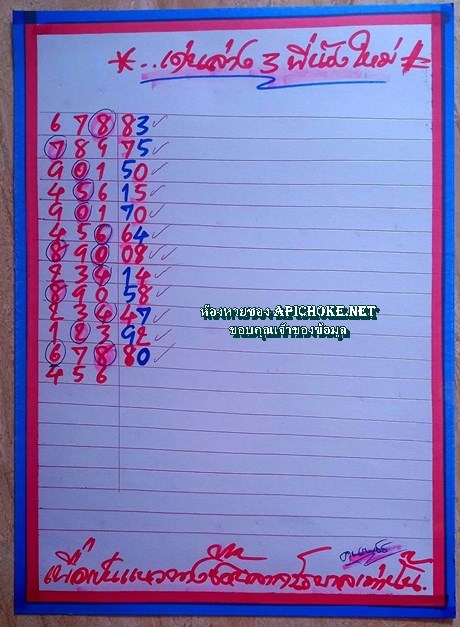 * ..เด่นล่าง 3 พี่น้อง ใหม่ *
6 7 8 83 ✓
7 8 9 75 ✓
9 0 1 50 ✓
4 5 6 15 ✓
9 0 1 70 ✓
4 5 6 64 ✓
8 9 0 08 ✓
2 3 4 14 ✓
8 9 0 58 ✓
2 3 4 47 ✓
1 2 3 92 ✓
6 7 8 80 ✓
4 5 6
ห้องหวยซอง APICHOKE.NET
ขอบคุณเจ้าของข้อมูล
เพื่อเป็นแนวทางซื้อสลากรัฐบาลเท่านั้น.